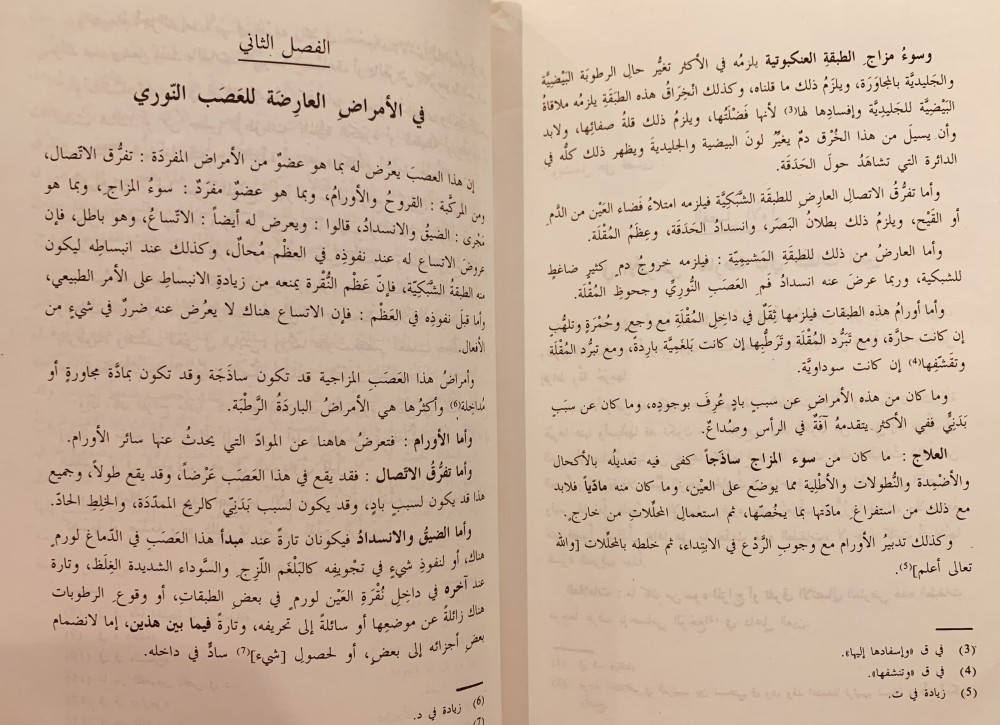 وسوءُ مزاجِ الطبقةِ العنكبوتية يلزمُه في الأكثر تغيُّر حالِ الرطوبةِ البَيْضِيَّة
والجَليديَّة بالمجاوَرَة، ويلزَمُ ذلك ما قلناه، وكذلك انْخِرَاقُ هذه الطبَقَةِ يلزمُه ملاقاةُ
البَيْضِيَّة للجَليدِيَّة وإفسادِها لها(3) لأنها فَضْلَتُها، ويلزمُ ذلك قلةُ صفائِها، ولابد
وأن يسيلَ من هذا الخُرْق دمٌ يغيِّرُ لونَ البيضية والجليدية ويظهر ذلك كلُّه في
الدائرة التي تشاهَدُ حولَ الحَدَقَة.
وأما تفرُّقُ الاتصالِ العارِضِ للطبقَة الشَّبَكِيَّة فيلزمه امتلاءُ فَضاء العَيْن من الدَّم
أو القَيْح، ويلزمُ ذلك بطلانُ البَصَر، وانسدادُ الحَدَقَة، وعِظَمُ المُقْلَة.
وأما العارضُ من ذلك للطبقَةِ المَشيمِيَّة : فيلزمه خروجُ دمٍ كثيرٍ ضاغطٍ
للشبكية، وربما عرضَ عنه انسدادُ فَمِ العَصَبِ النُّورِيِّ وجحوظِ المُقْلَة.
وأما أورامُ هذه الطبقات فيلزمها ثِقَلٌ في داخِلِ المُقْلَةِ مع وجعٍ وحُمْرَةٍ وتلهُّبٍ
إن كانت حارَّة، ومع تَبَرُّد المُقْلَة وتَرَطُّبِها إن كانت بَلغَمِيَّة بارِدةً، ومع تبرُّد المُقْلَة
وتقَشّفِها(4) إن كانت سوداويَّة.
وما كان من هذه الأمراضِ عن سببٍ بادٍ عُرِفَ بوجودِه، وما كان عن سبَبٍ
بَدَنِيٍّ ففي الأكثرِ يتقدمهُ آفَةٌ في الرأسِ وصُداعٌ.
العلاج : ما كان من سوء المزاج ساذَجاً كفى فيه تعديلُه بالأكحال
والأضْمِدة والنُّطولات والأطْلِية مما يوضَع على العيْن، وما كان منه مادّياً فلابد
مع ذلك من استفراغِ مادّتها بما يخُصّها، ثم استعمالِ المحلِّلاتِ من خارج.
وكذلك تدبيرُ الأورام مع وجوبِ الرَّدْع في الابتِداء، ثم خلطه بالمحلِّلات [والله
تعالى أعلم](5).
(3) في ق «وإفسادها إليها».
(4) في ق «وتنشفها».
(5) زيادة في ت.
الفصل الثاني
في الأمراضِ العارِضَة للعَصَب النّوري
إن هذا العصبَ يعرُض له بما هو عضوٌ من الأمراض المفردَة : تفرُّق الاتّصال،
ومن المركَّبة : القروحُ والأورامُ، وبما هو عضوٌ مفرَدٌ : سوءُ المزاج، وبما هو
مَجْرى : الضيقُ والانسدادُ، قالوا : ويعرض له أيضاً : الاتّساعُ، وهو باطل، فإن
عروضَ الاتساع له عند نفوذِه في العظْم مُحالٌ، وكذلك عند انبساطِه ليكون
منه الطبقةُ الشَّبَكِيّة، فإنّ عَظْم النُّقْرة يمنعه من زيادةِ الانبساط على الأمر الطبيعي،
وأما قبلَ نفوذِه في العَظْم : فإن الاتساع هناك لا يعرُض عنه ضررٌ في شيءٍ من
الأفعال.
وأمراضُ هذا العَصَبِ المزاجية قد تكون ساذَجَة وقد تكون بمادَّة مجاورةٍ أو
مُداخِلة(6) وأكثرُها هي الأمراضُ الباردَةُ الرَّطْبَة.
وأما الأورام : فتعرضُ هاهنا عن الموادّ التي يحدثُ عنها سائر الأورام.
وأما تفرُّقُ الاتّصال : فقد يقع في هذا العَصَب عَرْضاً، وقد يقع طولاً، وجميع
هذا قد يكون لسببٍ بادٍ، وقد يكون لسبب بَدَنِيّ كالريح الممدِّدَة، والخلِطِ الحادّ.
وأما الضيقُ والانسدادُ فيكونان تارةً عند مبدأ هذا العَصَبِ في الدّماغ لورمٍ
هناك، أو لنفوذِ شيءٍ في تجْويفِه كالبَلْغَم اللّزِج والسَّوداء الشديدة الغِلَظ، وتارة
عند آخره في داخِلِ نُقْرَةِ العَيْن لورمٍ في بعضِ الطبقاتِ، أو وقوعِ الرطوبات
هناك زائلةً عن موضعِها أو سائلةً إلى تحريفه، وتارةً فيما بين هذين، إما لانضمام
بعضِ أجزائه إلى بعضٍ، أو لحصولِ [شيء](7) سادٍّ في داخله.
(6) زيادة في د.
(7)